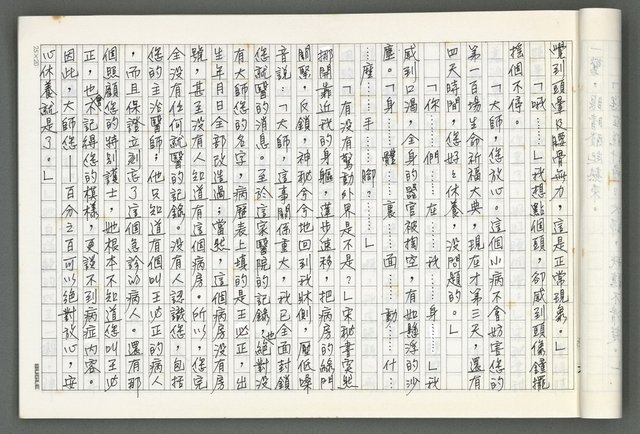 覺到頭暈及腰骨無力，這是正常現象。」
「哦……」我想點個頭，卻感到頭像鐘擺
搖個不停。
「大師，您放心。這個小病不會妨害您的
第一百場生命祈福大典，現在才第三天，還有
四天時間，您好好休養，沒問題的。」
「你……們……在……我……身……」我
感到口渴，全身的器官被掏空，有如懸浮的沙
塵。「身……體……裏……面……動……什……
……麼……手……腳？……」
「有沒有驚動外界是不是？」宋秘書突然
挪開靠近我的身軀，蓮步速移，把病房的綠門
關緊，反鎖，神秘兮兮地回到我牀側，壓低噪
音說：「大師，這事關係重大，我已全面封鎖
您就醫的消息。至於這家醫院的記錄，也絕對沒
有大師您的名字，病歷表上填的是王必正，出
生年月日全部改造過；當然，這個病房沒有房
號，甚至沒有人知道有這個病房。所以，您完
全沒有任何就醫的記錄。沒有人認識您，包括
您的主治醫師；他只知道有個叫王必正的病人
，而且保證立刻忘了這個急診的病人。還有那
個照顧您的特別護士，她根本不知道您叫王必
正，也不會記得您的模樣，更說不到病症內容。
因此，大師您——百分之百可以絕對放心，安
心休養就是了。」
25×20